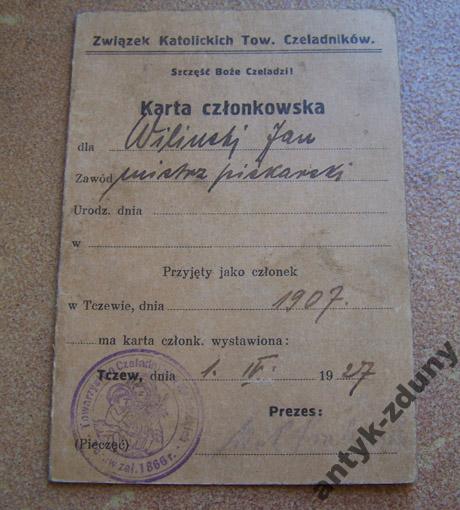 Związek Katolickich Tow. Czeladników.
Szczęść Boże Czeladzi!
Karta członkowska
dla Wilinski Jan
Zawód mistrz piekarski
Urodz. dnia
w
Przyjęty jako członek
w Tczewie, dnia 1907.
ma karta członk. wystawiona:
Tczew, dnia 1. IV. 1927
Prezes:
(Pieczęć)
zał. 1866 r.
antyk-zduny